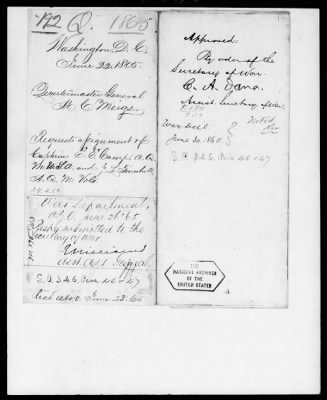 172 Q. 1865
Washington D.C.
June 22. 1865.
Quartermaster General
M. C. Meigs.
Requests assignment of
Captains E. E. Camp a.q.m.
U.S.A. and
A. Q. M. Vols
War Department,
A.G.O. June 26" 65
Respy submitted to the
Secretary of War.
Asst. Adjt. General
S.O. 326, Par 46 & 47
June 28. 65
Approved:
By order of the
Secretary of War.
C. A. Dana.
Assist. Secretary of War
War Dept.
June 26. 1865.
Noted,
S.O. 326, Par 46 & 47
THE
NATIONAL ARCHIVES
OF THE
UNITED STATES